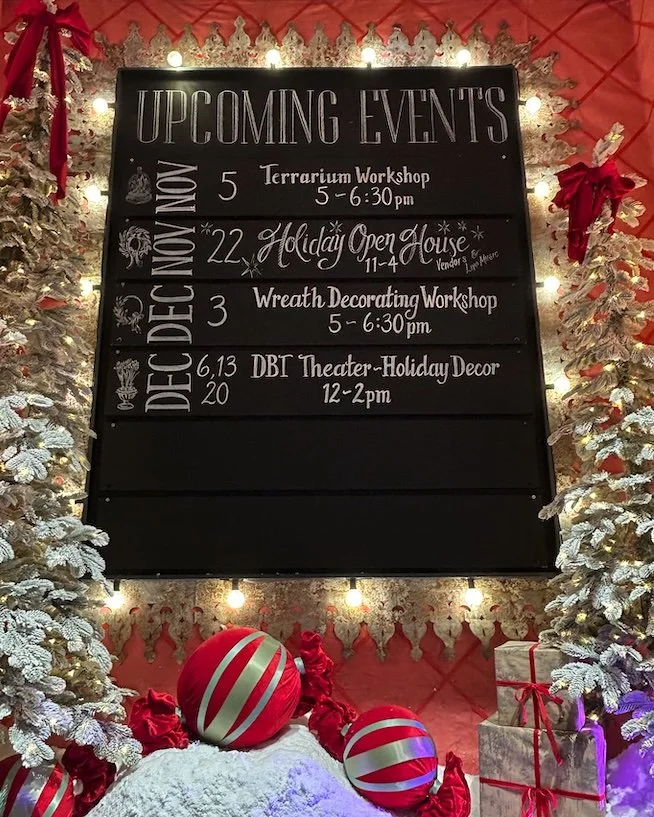 UPCOMING EVENTS
NOV 5 Terrarium Workshop
5-6:30pm
NOV 22 Holiday Open House
11-4 Vendors & Live Music
DEC 3 Wreath Decorating Workshop
5-6:30pm
DEC 6,13 DBT Theater-Holiday Decor
20 12-2pm